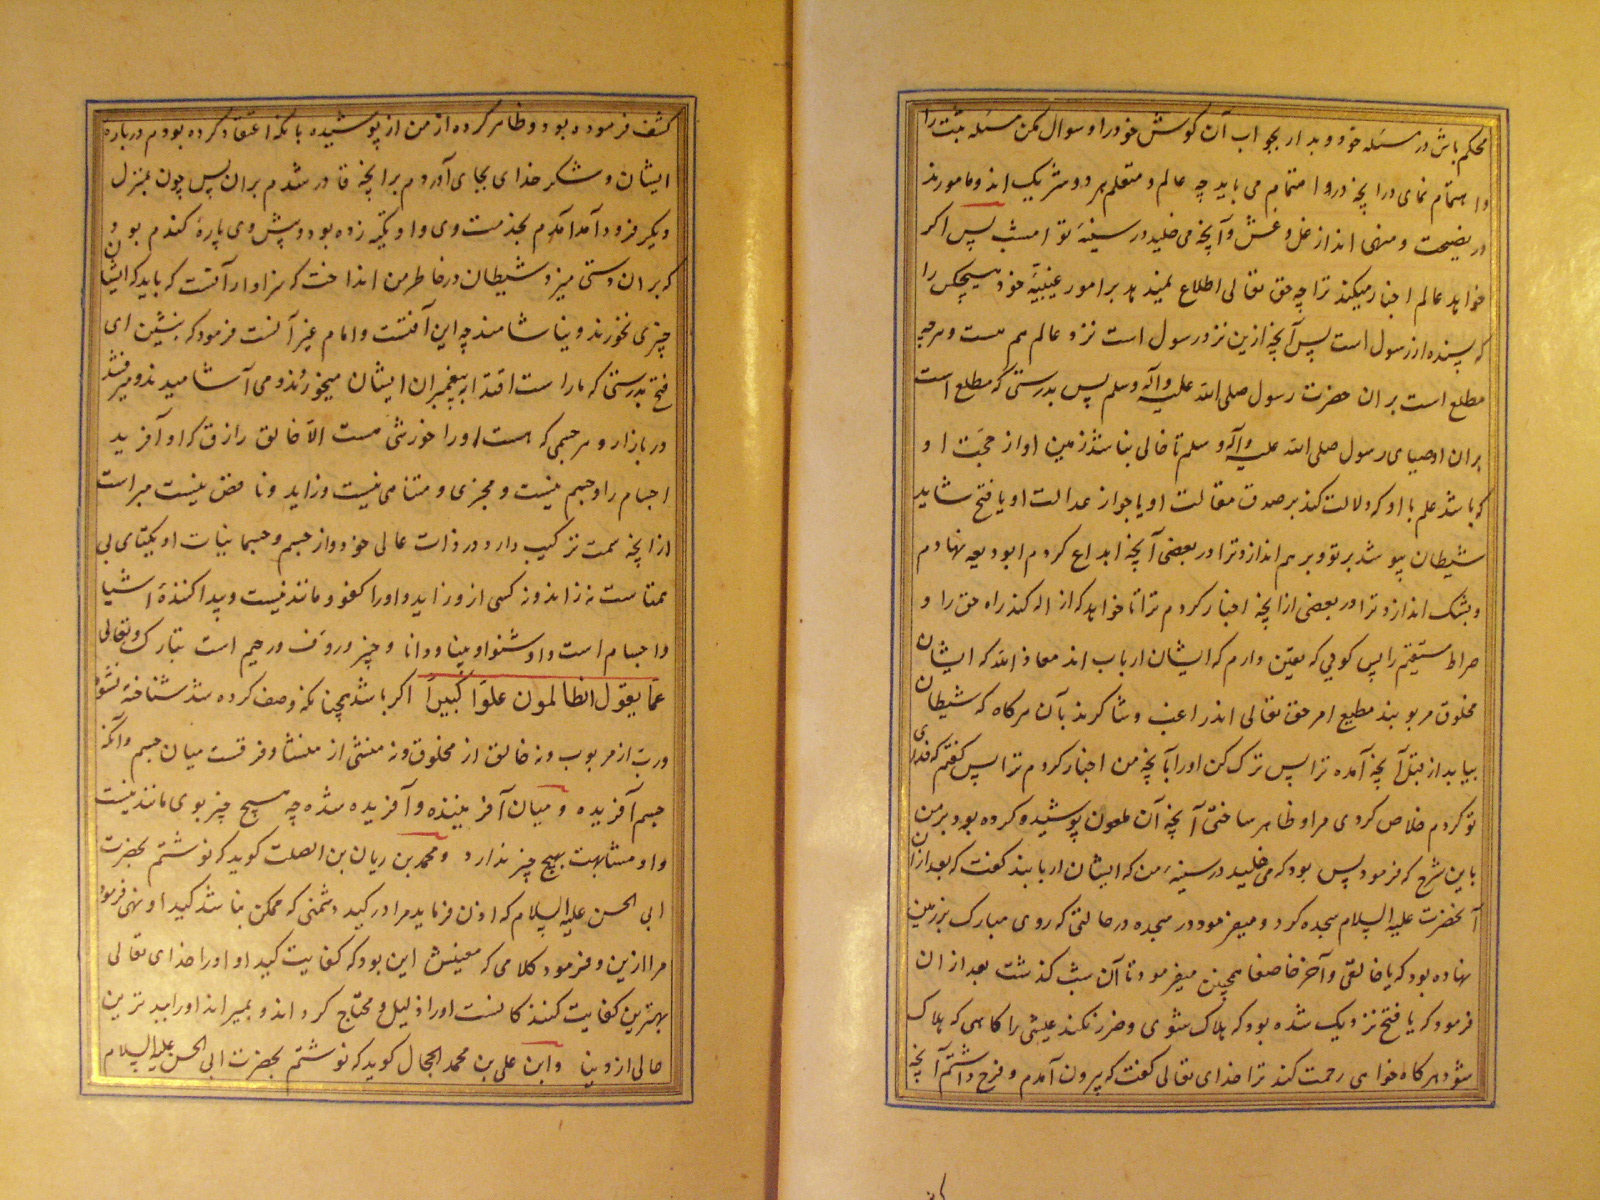 محکم باش در مسئله خود و بدار بجواب آن گوش خود را و سوال مکن مسئله
و اهتمام نمای در آنچه درو اهتمام می باید چه عالم و متعلم هر دو شریک اند و مامورند
در نصیحت و منهی اند از غل و غش و آنچه می خلید در سینهٔ تو امشب پس اگر
خواهد عالم اخبار میکند ترا چه حق تعالی اطلاع نمیدهد بر امور غیبیهٔ خود هیچکس را
که پسندد از رسول است پس آنچه ازین نزد رسول است نزد عالم هم هست و هرچه
مطلع است بر آن حضرت رسول صلی الله علیه وآله وسلم پس بدرستی که مطلع است
بر آن اوصیای رسول صلی الله علیه وآله وسلم تا خالی نباشد زمین او از حجت او
که باشد علم با او که دلالت کند بر صدق مقالت او یا جواز عدالت او یا فتح شاید
شیطان پوشد بر تو و بر هم اندازد ترا در بعضی آنچه ابداع کردم
و بشک اندازد ترا در بعضی از آنچه اخبار کردم ترا تا خواهد که ازاله کند راه حق را و
صراط مستقیم را پس گویی که یقین دارم که ایشان ارباب اند معاذ الله که ایشان
مخلوق مربوبند مطیع امر حق تعالی اند راغب و شاکرند بآن هرگاه که شیطان
بیاید از قبل آنچه آمده ترا پس ترک کن او را بآنچه من اخبار کردم ترا پس گفتم که فدای
تو گردم خلاص کردی مرا و ظاهر ساختی آنچه آن ملعون پوشیده کرده بود بر من
باین شرح که فرمود پس بود که می خلید در سینهٔ من که ایشان اربابند گفت که بعد از آن
آنحضرت علیه السلام سجده کرد و میفرمود در سجده در حالتی که روی مبارک بر زمین
نهاده بود که یا خالقی و آخر خاضعا همچنین میفرمود تا آن شب گذشت بعد از ان
فرمود که یا فتح نزدیک شده بود که هلاک شوی و ضرر نکند عیسی را گاهی که هلاک
شود هرگاه خواهی رحمت کند ترا خدای تعالی گفت که بیرون آمدم و فرح داشتم آنچه
کشف فرموده بود و ظاهر کرده از من از پوشیده بآنکه اعتقاد کرده بودم درباره
ایشان و شکر خدای بجای آوردم بر آنچه قادر شدم بر ان پس چون بمنزل
دیگر فرود آمد آمدم بخدمت وی و او تکیه زده بود و پیش وی پارهٔ گندم بود
که بر ان دستی میزد و شیطان در خاطر من انداخت که سزاوار آنست که باید که ایشان
چیزی نخورند و نیاشامند چه این آفتست و امام غیر آنست فرمود که بنشین ای
فتح بدرستی که ما را است اقتدا به پیغمبران ایشان میخوردند و می آشامیدند و میرفتند
در بازار و هر جسمی که هست او را خورشی هست الا خالق رازق که او آفرید
اجسام را و جسم نیست و مجزی و متناهی نیست و زاید و ناقص نیست مبراست
از آنچه سمت ترکیب دارد در ذات عالی خود و از جسم و جسمانیات او یکتای بی
همتاست نه زاند و نه کسی ازو زاید و او را کفو و مانند نیست و پیدا کنندهٔ اشیا
و اجسام است و او شنوا و بینا و دانا و خبیر و روف و رحیم است تبارک و تعالی
عما یقول الظالمون علوا کبیرا اگر باشد چنانکه وصف کرده شد شناخته نشود
و رب از مربوب و نه خالق از مخلوق و نه منشئ از منشا و فرقست میان جسم و آنکه
جسم آفریده و میان آفریننده و آفریده شده چه هیچ چیز بوی مانند نیست
و او مشابهت بهیچ چیز ندارد و محمد بن ریان بن الصلت گوید که نوشتم بحضرت
ابی الحسن علیه السلام که اذن فرماید مرا در کید دشمنی که ممکن نباشد کید او نهی فرمود
مرا ازین و فرمود کلامی که معنیش این بود که کفایت کید او او را خدای تعالی
بهترین کفایت کنندگانست او را ذلیل و محتاج گرداند و بمیراند او را ببدترین
حالی از دنیا و ابن علی بن محمد الحجال گوید که نوشتم بحضرت ابی الحسن علیه السلام